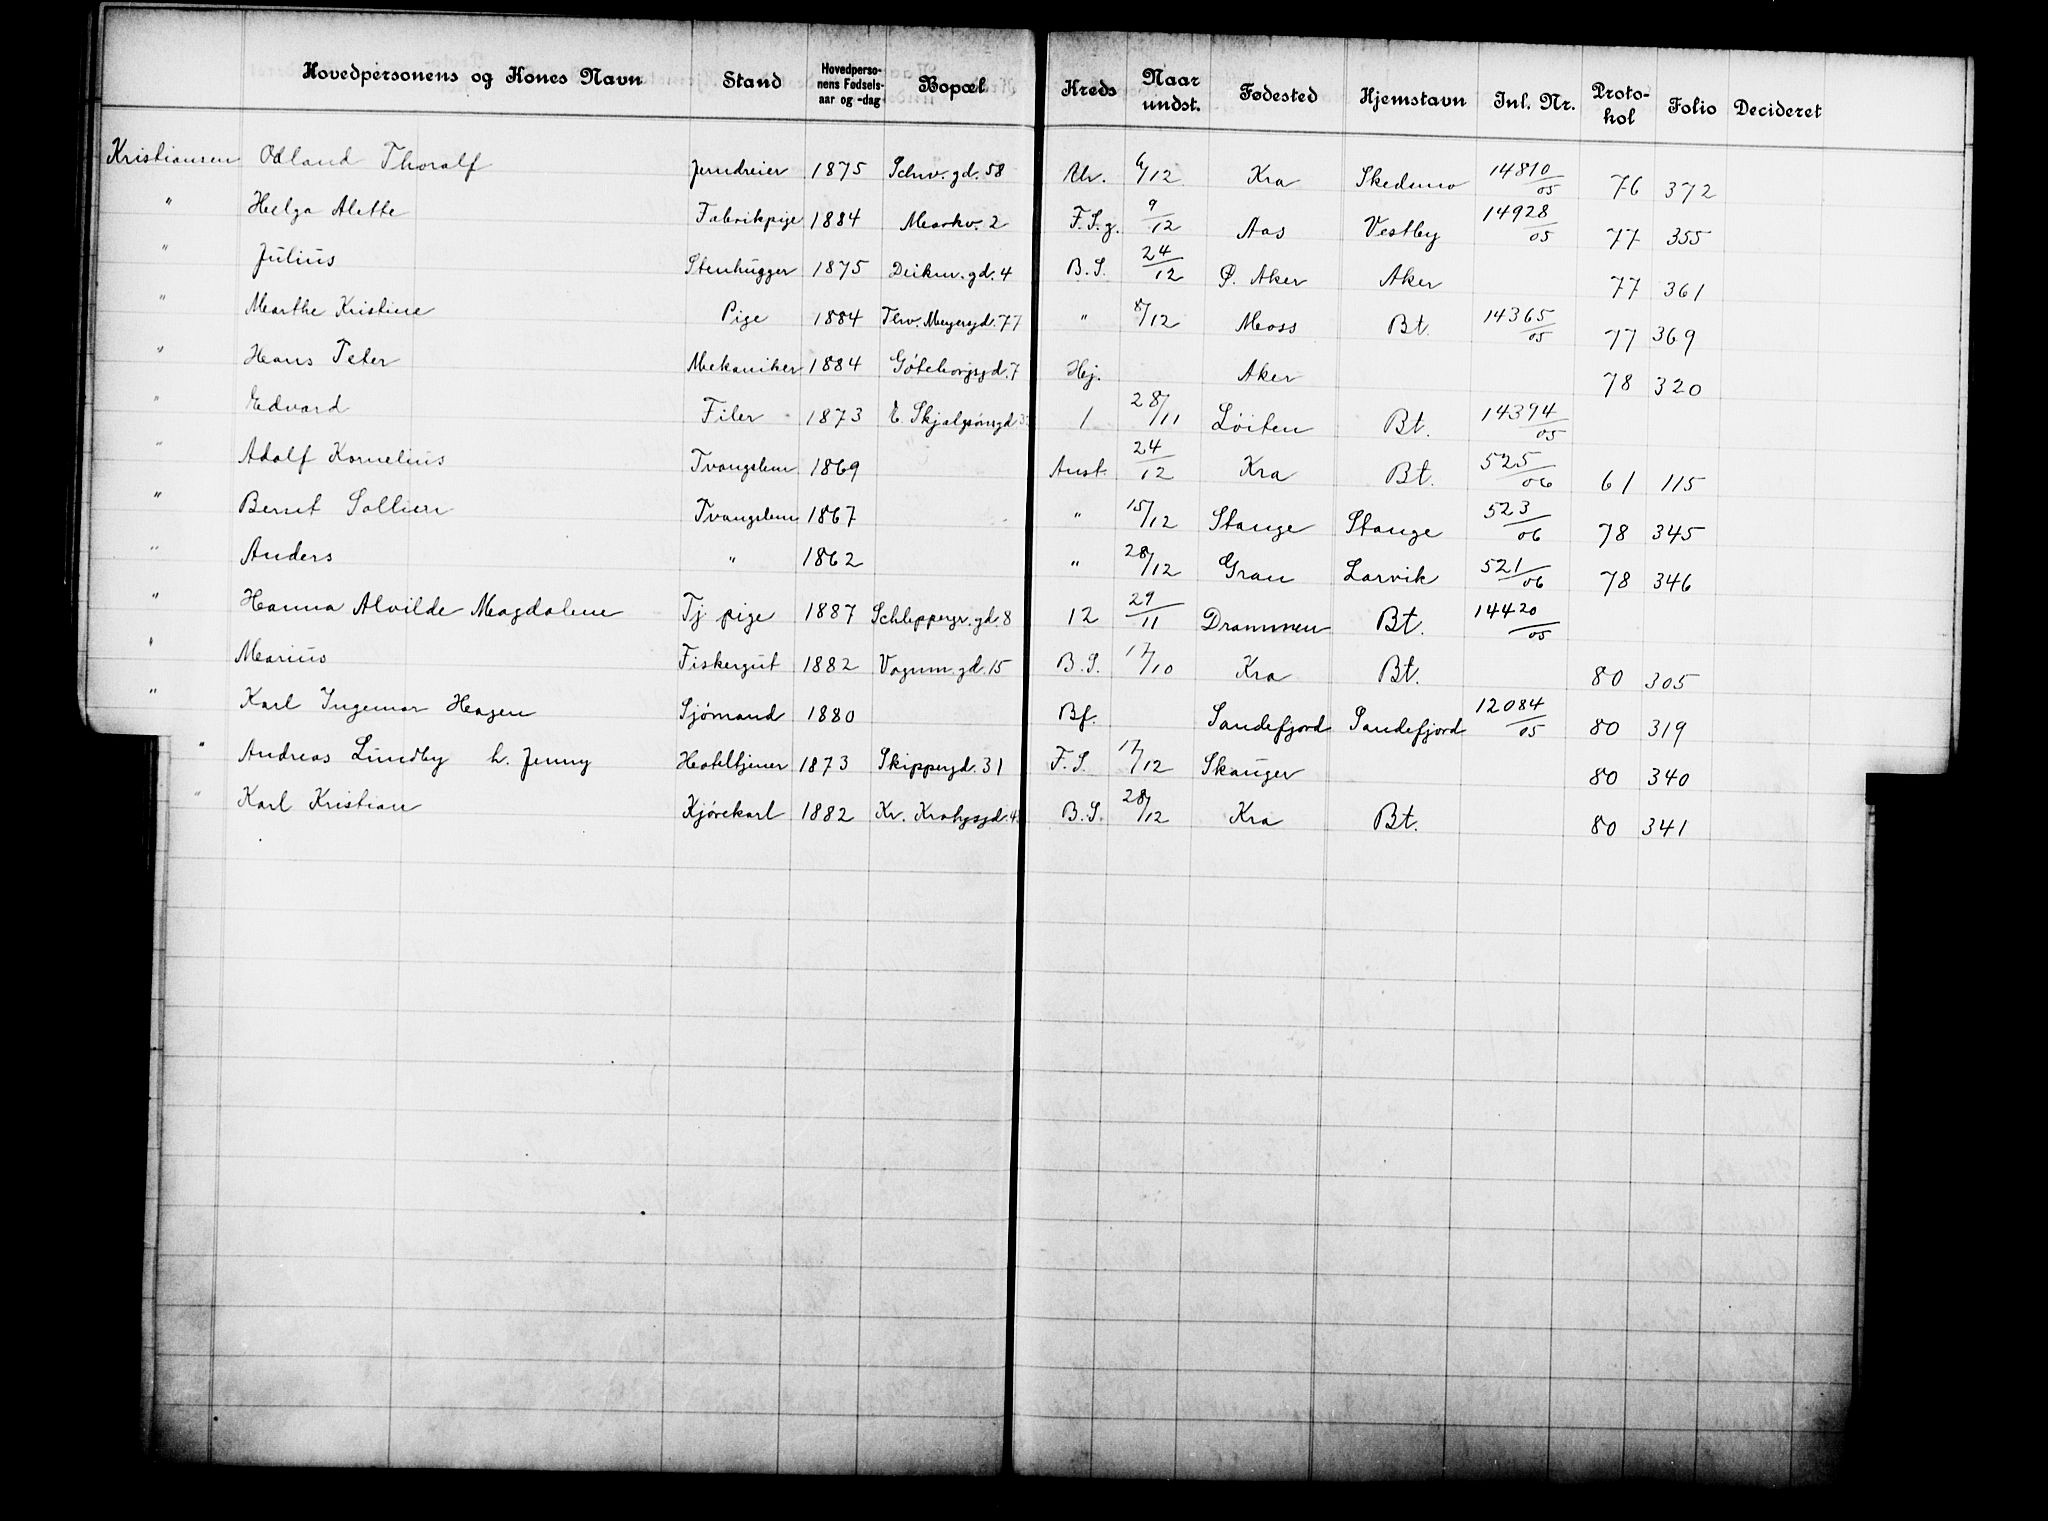 Hovedpersonens og Kones Navn Stand Hovedperso-nens Fødsels-aar og -dag Bopæl Kreds Naar undst. Fødested Hjemstavn Inl. Nr. Proto-kol Folio Decideret
Kristiansen Odland Thoralf Jerndreier 1875 Schw. gd. 58 6/12 Kra Skedsmo 14810/05 76 372
" Helga Alette Fabrikpige 1884 Markv. 2 F. S. g. 9/12 Aas Vestby 14928/05 77 355
" Julius Stenhugger 1875 Deikm. gd. 4 B. S. 24/12 Ø. Aker Aker 77 361
" Marthe Kristine Pige 1884 Thv. Meyersgd. 77 " 8/12 Moss Bt. 14365/05 77 369
" Hans Peter Mekaniker 1884 Göteborgsgd. 7 Hj. Aker 78 320
" Edvard Filer 1873 E. Skjalgsönsgd 1 28/11 Löiten Bt. 14394/05
" Adolf Kornelius Tvangslem 1869 Anst. 24/12 Kra Bt. 525/06 61 115
" Bernt Sollien Tvangslem 1867 " 15/12 Stange Stange 523/06 78 345
" Anders " 1862 " 28/12 Gran Larvik 521/06 78 346
" Hanna Alvilde Magdalene Tj pige 1887 Schleppegr. gd. 8 12 29/11 Drammen Bt. 14420/05
" Marius Fiskergut 1882 Vognm. gd. 15 B. S. 17/10 Kra Bt. 80 305
" Karl Ingemar Hagen Sjömand 1880 Bf. Sandefjord Sandefjord 12084/05 80 319
" Andreas Lundby h. Jenny Hoteltjener 1873 Skippergd. 31 F. S. 17/12 Skauger 80 340
" Karl Kristian Kjörekarl 1882 Kr. Kroghsgd. 4 B. S. 28/12 Kra Bt. 80 341